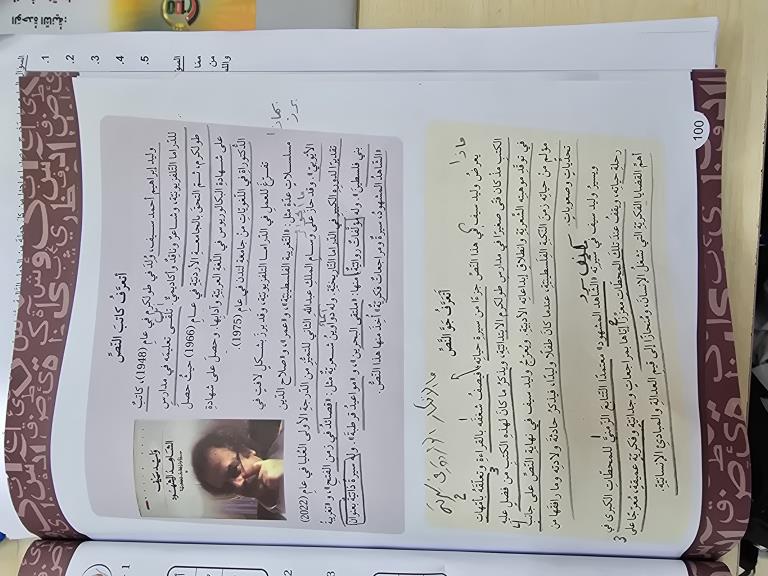 أتعرَّفُ كاتبَ النصِّ
وليد إبراهيم أحمد سيف، وُلد في طولكرم في عام (1948)، كاتبٌ
للدراما التلفزيونيّة، وشاعرٌ وناقدٌ وأكاديميٌّ، تلقّى تعليمَه في مدارس
طولكرم، ثمّ التحقَ بالجامعةِ الأردنيّةِ في عام (1966) حيثُ حصل
على شهادةِ البكالوريوس في اللغة العربيّة وآدابها، وحصلَ على شهادةِ
الدُّكتوراة في اللغويّات من جامعة لندن في عام (1975).
تفرّغَ للعملِ في الدراما التلفزيونيّة، وقد برزَ بشكلٍ لافتٍ في
مسلسلات عدّة مثل: «التغريبة الفلسطينيّة»، و«عمر»، و«صلاح الدين
الأيّوبيّ»، وقد حازَ على وسام الملك عبدالله الثاني للتميّز من الدرجة الأولى العُليا في عام (2022)
تقديرًا لدوره الكبير في الدراما التاريخيّة. وله دواوين شعريّة مثل: «قصائد في زمن الفتح»، و«تغريبة
بني فلسطين»، وله مؤلّفاتٌ روائيّةٌ منها: «ملتقى البحرين»، و«مواعيدُ قرطبة»، وله سيرةٌ ذاتيّةٌ بعنوان
«الشاهدُ المشهودُ، سيرةٌ ومراجعاتٌ فكريّةٌ» أُخذ منها هذا النصُّ.
وليد سيف
الشاهد المشهود
أتعرَّفُ جوَّ النصِّ
يعرض وليد سيف في هذا النصّ جزءًا من سيرة حياته، فيصفُ شغفَه بالقراءة وتعلُّقَه بأمّهات
الكتب مذ كان فتًى صغيرًا في مدارس طولكرم الابتدائيّة، ويذكرُ ما كان لهذه الكتبِ من فضلٍ عليه
في توقّد موهبته الشعريّة وانطلاق إبداعاته الأدبيّة. ويُعرِّجُ وليد سيف في نهاية النصّ على جانبٍ
مؤلمٍ من حياته زمن النكبة الفلسطينيّة، عندما كان طفلًا وليدًا، فيذكرُ حادثةَ ولادته وما رافقها من
تحدّياتٍ وصعوباتٍ.
ويسيرُ وليد سيف في سيرته «الشاهد المشهود» معتمدًا التتابع الزمنيَّ للمحطّات الكبرى في
رحلة حياته، ويقفُ عند تلك المحطّات معزّزًا إيّاها بمراجعاتٍ وجدانيّة وفكريّة عميقة، معرّجًا على
أهمّ القضايا الفكريّة التي تشغلُ الإنسان، ومنحازًا إلى قيم العدالة والمبادئ الإنسانيّة.
100